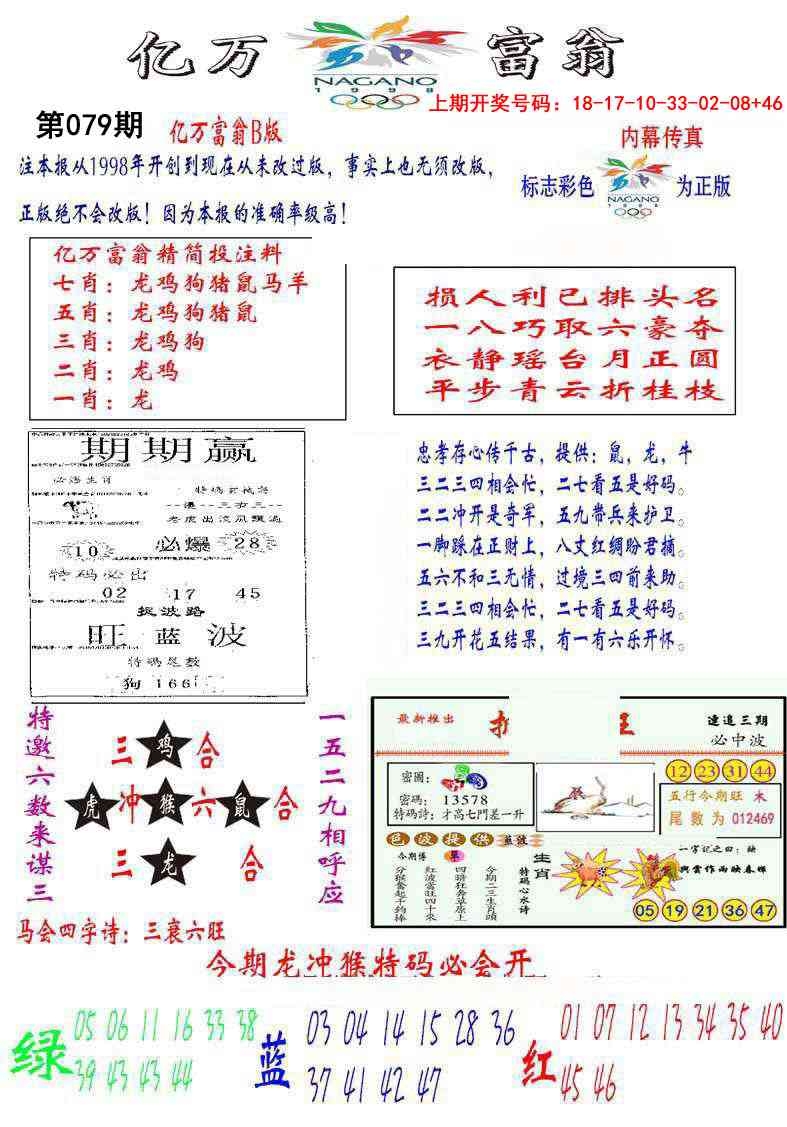 亿万富翁
NAGANO
1998
上期开奖号码：18-17-10-33-02-08+46
第079期
亿万富翁B版
内幕传真
注本报从1998年开创到现在从未改过版，事实上也无须改版，
正版绝不会改版！因为本报的准确率级高！
标志彩色
NAGANO
1998
为正版
亿万富翁精简投注料
七肖：龙鸡狗猪鼠马羊
五肖：龙鸡狗猪鼠
三肖：龙鸡狗
二肖：龙鸡
一肖：龙
损人利已排头名
一八巧取六豪夺
衣静瑶台月正圆
平步青云折桂枝
期期赢
老虎出洞凤飘过
10
必爆
28
特码必出
02 17 45
捉波路
旺蓝波
特码尾数
狗166
忠孝存心传千古，提供：鼠，龙，牛
三二三四相会忙，二七看五是好码。
二二冲开是奇军，五九带兵来护卫。
一脚踩在正财上，八丈红绸盼君摘。
五六不和三无情，过境三四前来助。
三二三四相会忙，二七看五是好码。
三九开花五结果，有一有六乐开怀。
特邀六数来谋三
三鸡合
虎冲猴六鼠合
三龙合
一五二九相呼应
马会四字诗：三衰六旺
最新推出
連追三期
必中波
密圖：
密碼：13578
特码詩：才高七門差一升
12 23 31 44
五行今期旺 木
尾數为 012469
色波提供 蓝波
今期博
分猴奮起千钧棒
红波當旺四十来
四蹄狂奔草原上
今期二三生肖頭
特码心水诗
生肖
一字记之曰：映
興雲作雨映春輝
05 19 21 36 47
今期龙冲猴特码必会开
绿
05 06 11 16 33 38
39 43 43 44
蓝
03 04 14 15 28 36
37 41 42 47
红
01 07 12 13 34 35 40
45 46